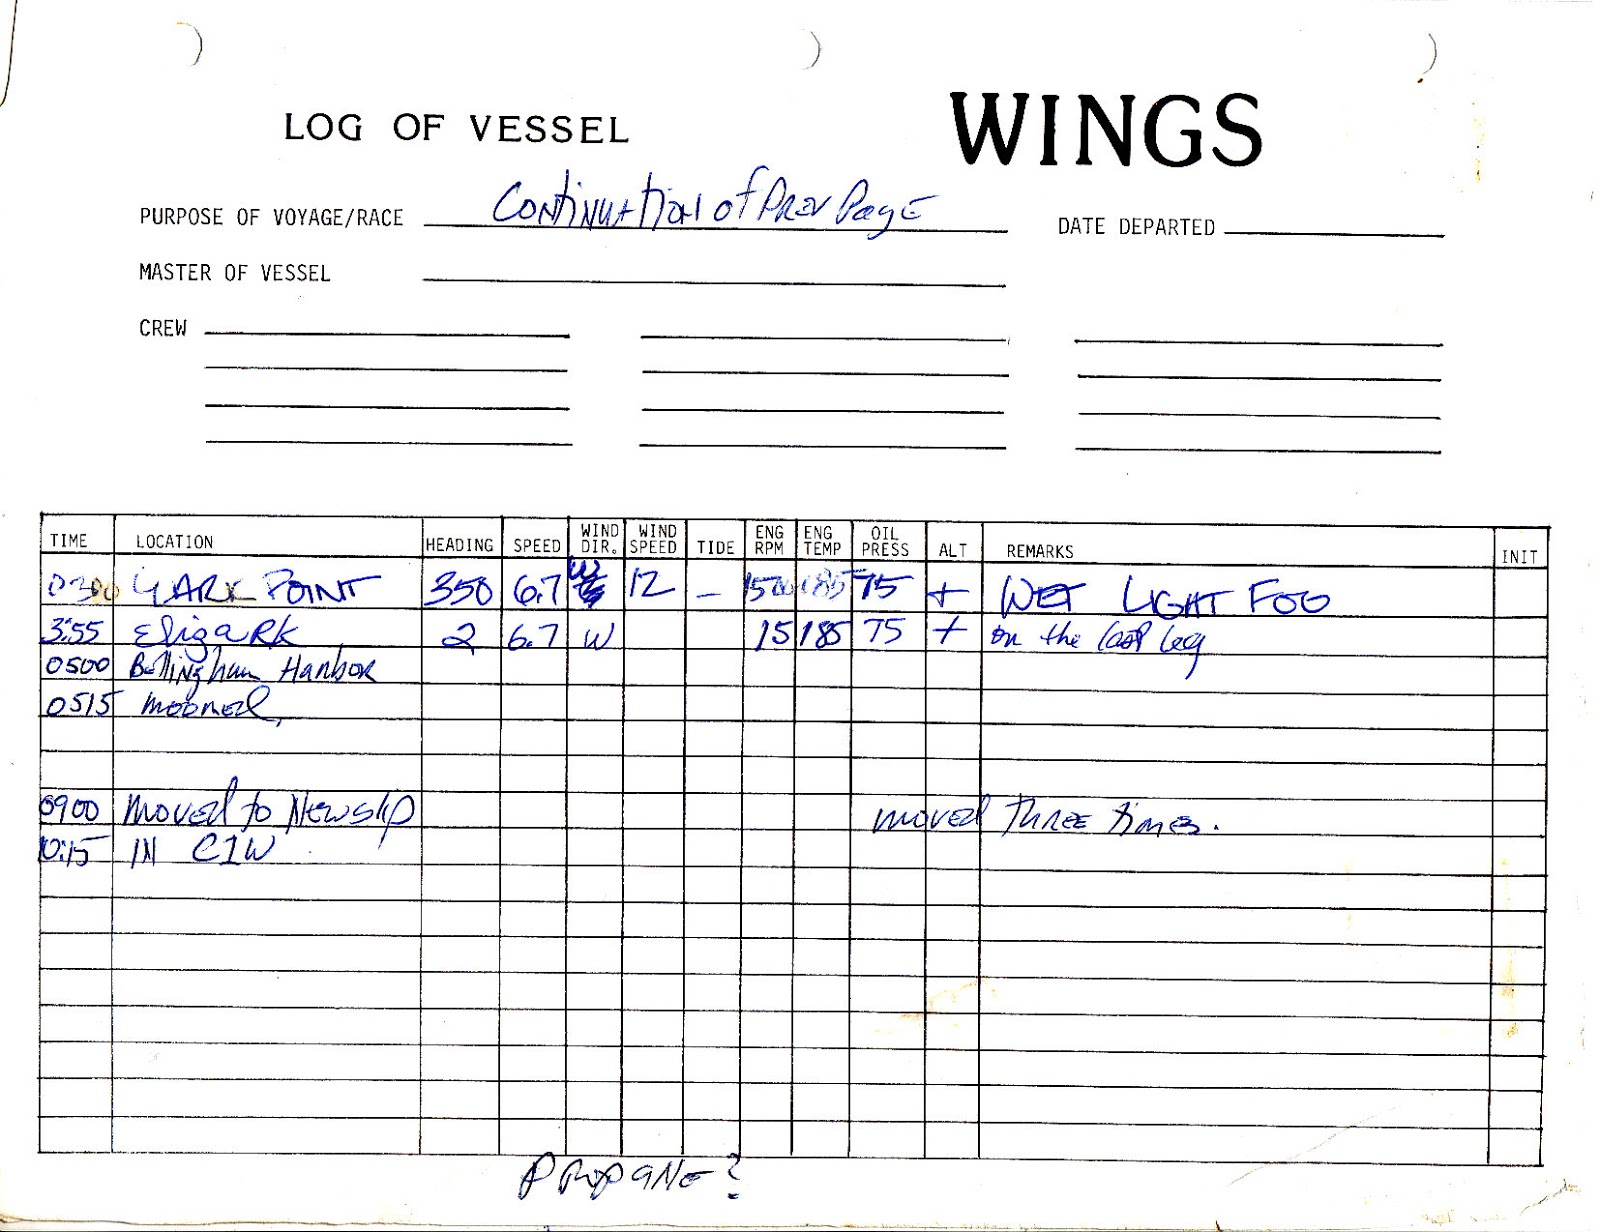 LOG OF VESSEL WINGS
PURPOSE OF VOYAGE/RACE Continuation of Prev Page DATE DEPARTED
MASTER OF VESSEL
CREW
TIME LOCATION HEADING SPEED WIND DIR. WIND SPEED TIDE ENG RPM ENG TEMP OIL PRESS ALT REMARKS INIT
0300 POINT 350 6.7 W 12 – 1500 185 75 + WET LIGHT FOG
3:55 Eliza RK 2 6.7 W 15 185 75 + on the last leg
0500 Bellingham Harbor
0515 moored
0900 moved to New slip moved three times.
10:15 IN CIW
PROPANE?